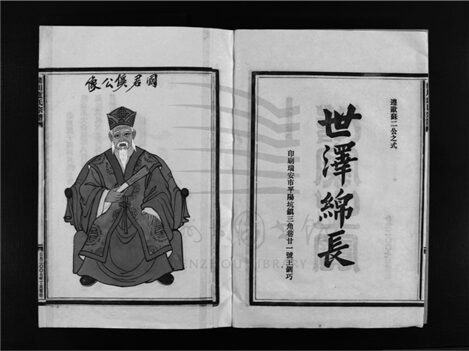 遵歐蘇二公之式
世澤綿長
印刷瑞安市平陽坑鎮三角巷廿一號王釧巧
國君公像
ENZHOU LIBRARY